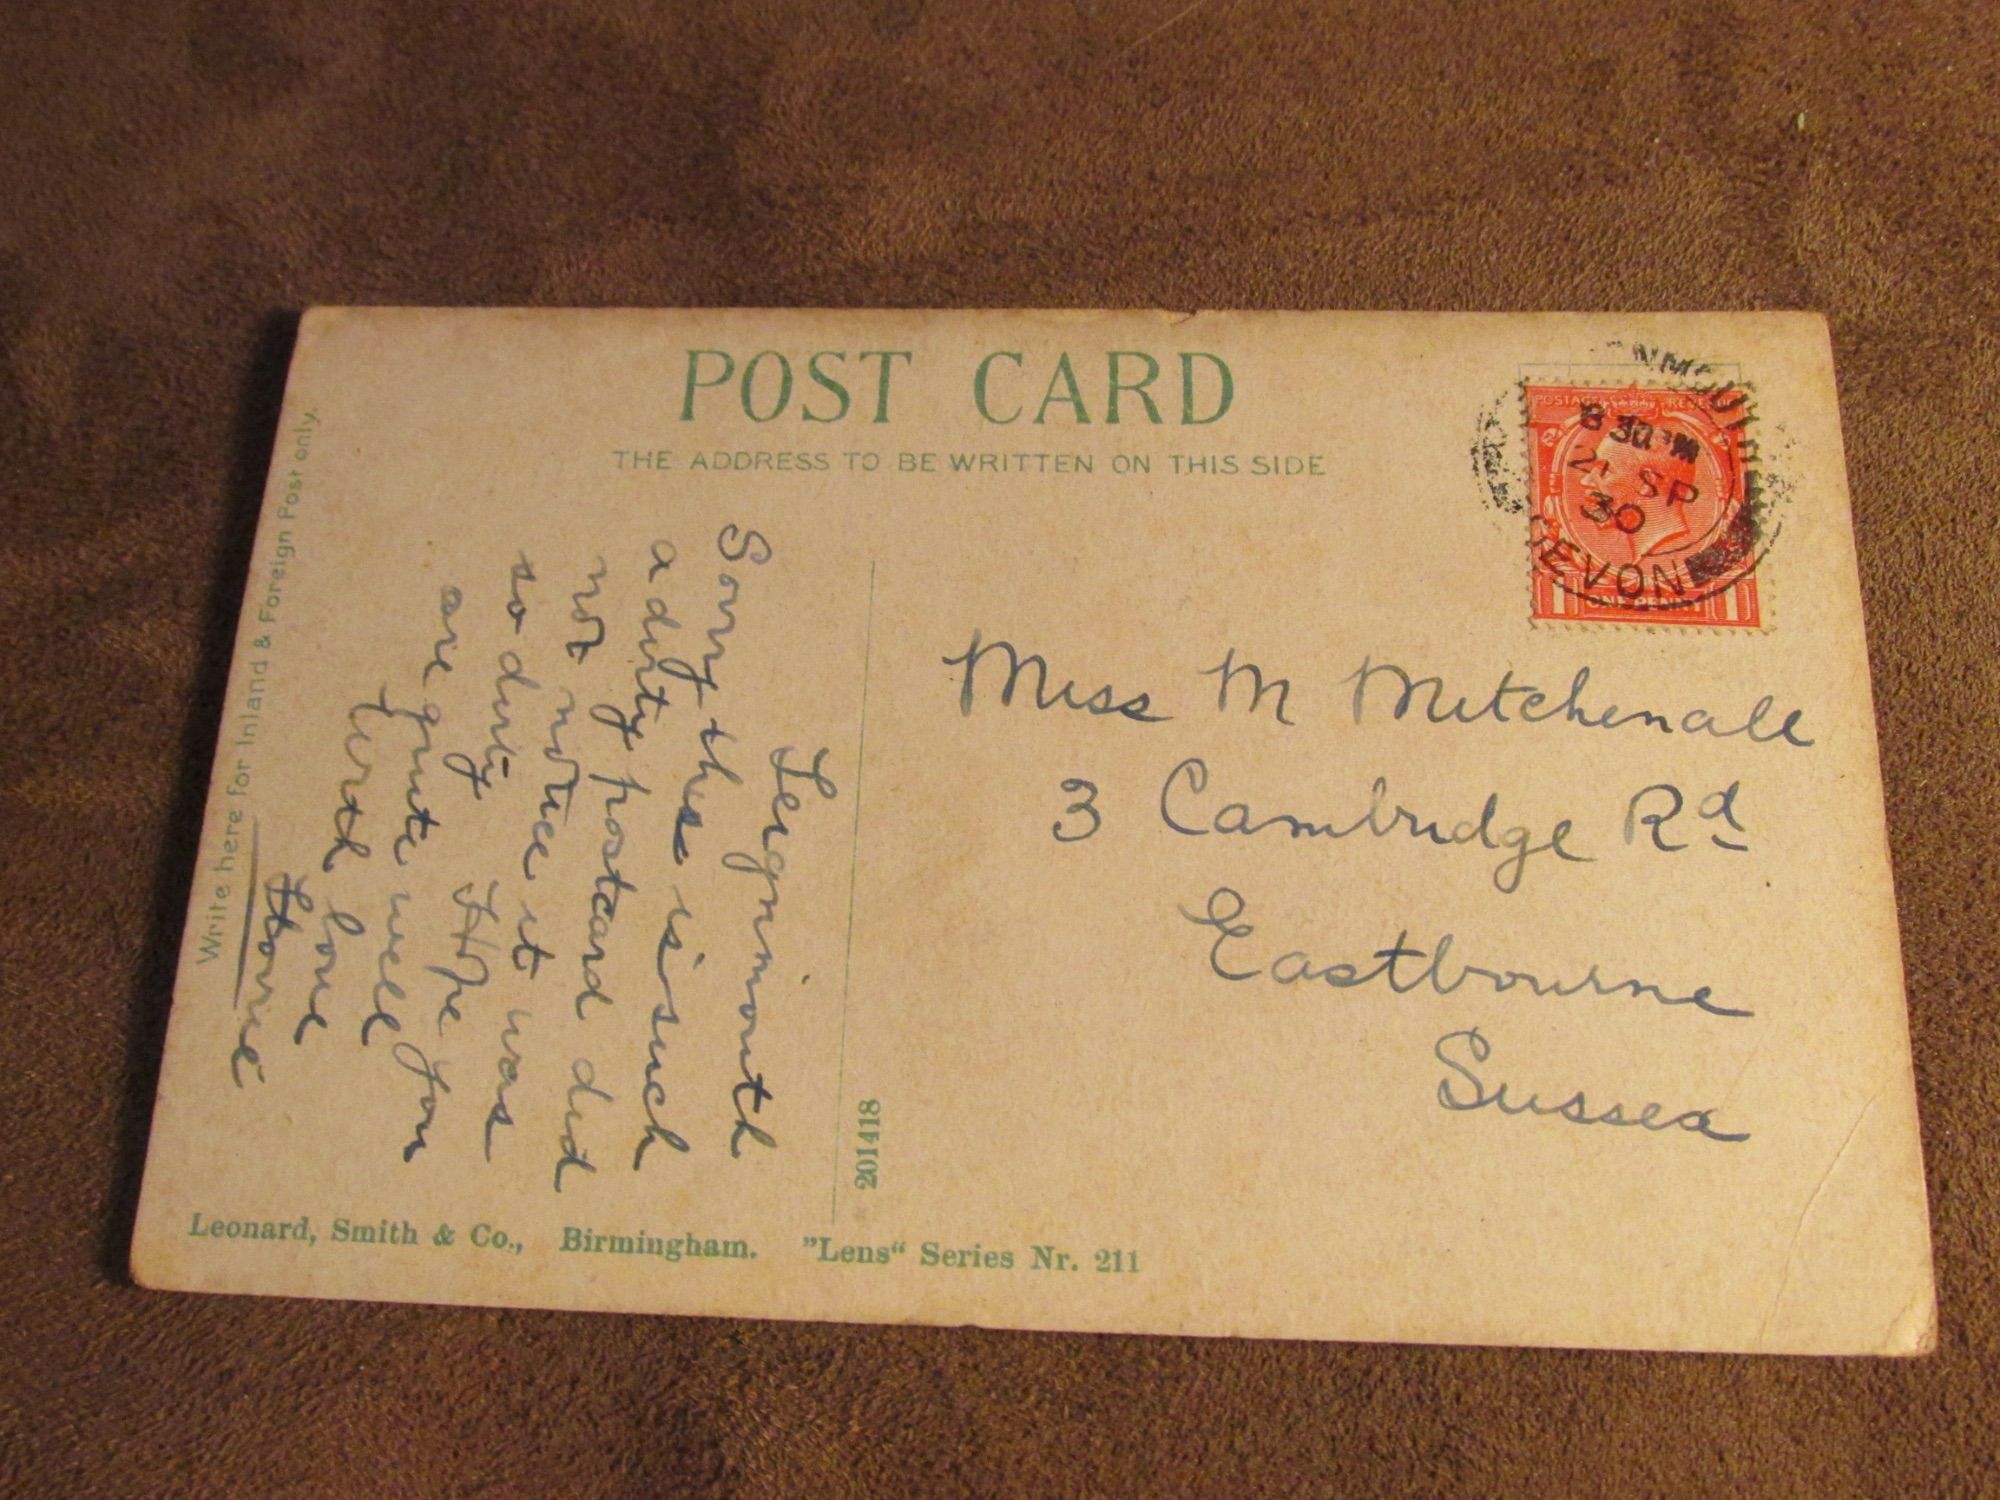 POST CARD
THE ADDRESS TO BE WRITTEN ON THIS SIDE
Write here for Inland & Foreign Post only.
Teignmouth
Sorry this is such
a dirty postcard did
not notice it was
so dirty Hope you
are quite well
With love
Florrie
Miss M Mitchenall
3 Cambridge Rd
Eastbourne
Sussex
POSTAGE REVENUE
ONE PENNY
1 1
NMOUTH
8 30 PM
21 SP
30
DEVON
201418
Leonard, Smith & Co., Birmingham. "Lens" Series Nr. 211